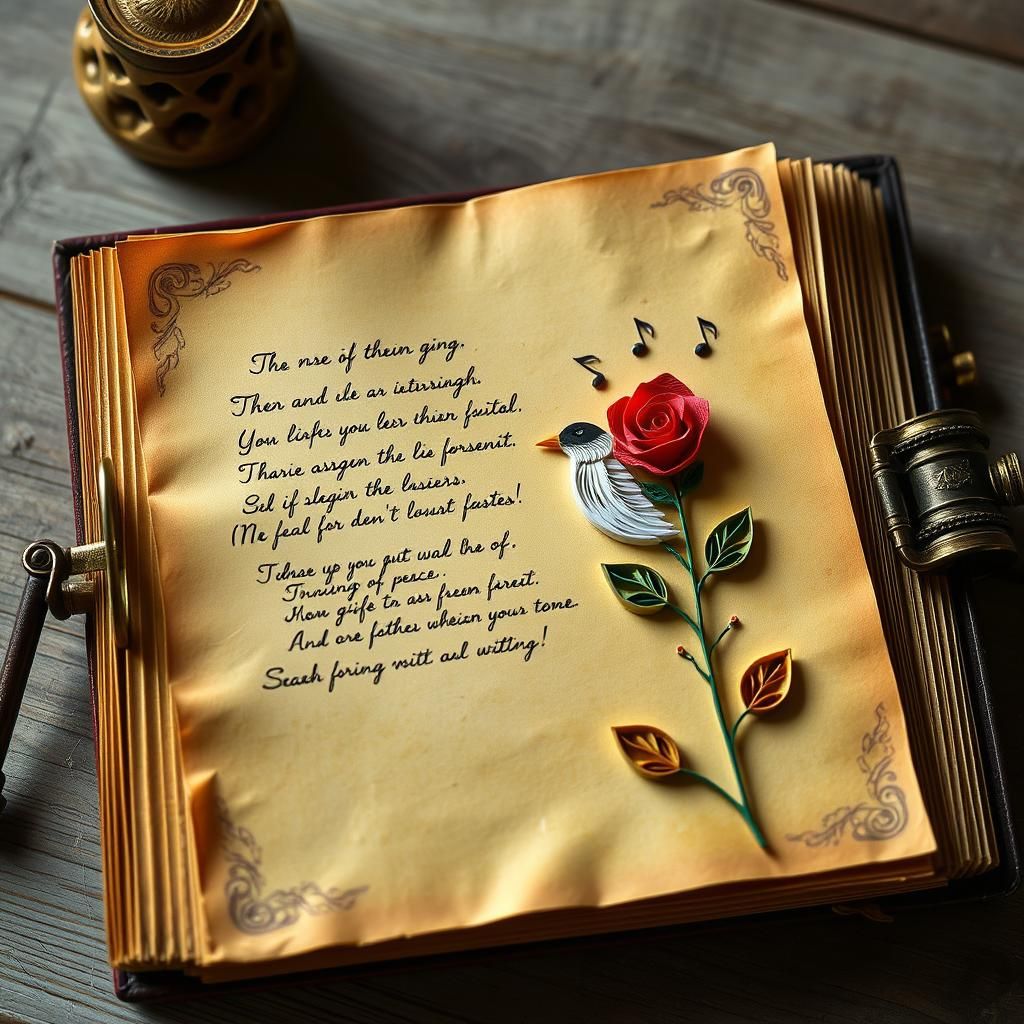 The nse of thein ging.
Then and ile ar ietursingh.
You lisfes you lesr thisin fustal.
Tharie assgen the lie forsenit.
Sel if slegin the lassiers.
(Ne feal for den't lousst fustes!
Tdnse up you gut wal lhe of.
Tnniung of pesce.
How giffe tn ass freen fireit.
And are fother wheizn your tome.
Seaah foring msitt aul wittling!